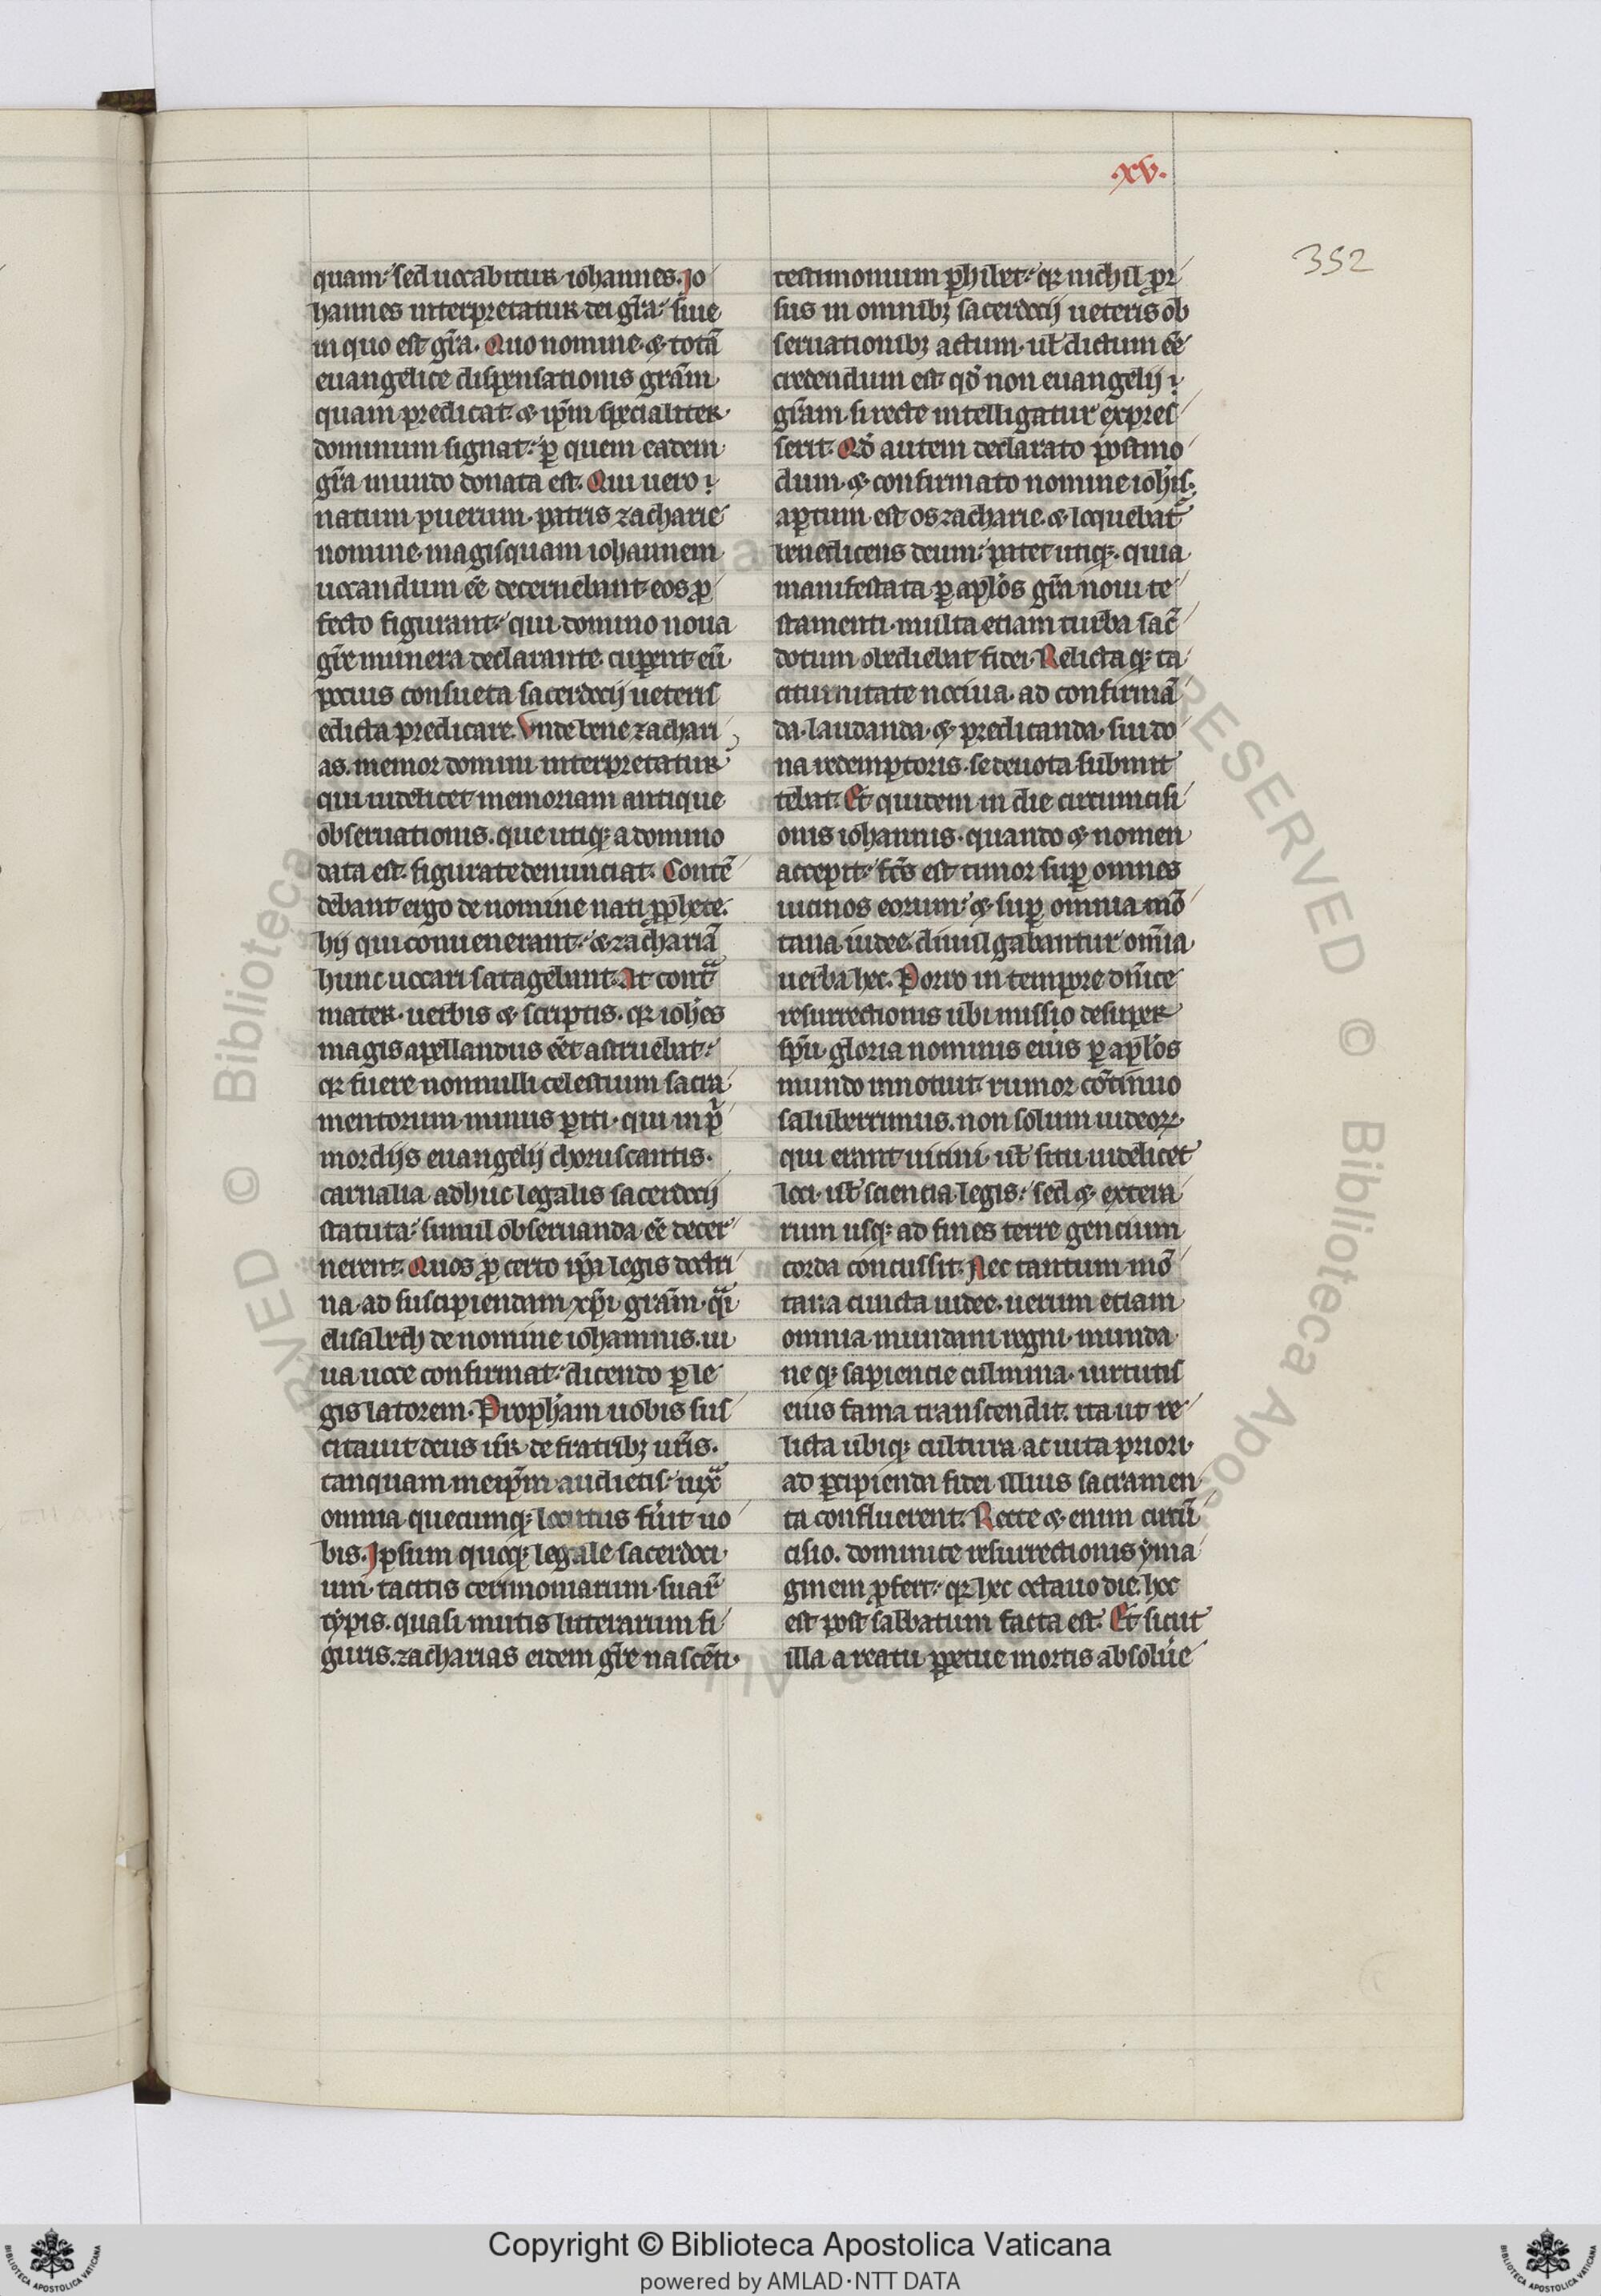 .xv.
352
quam: sed uocabitur iohannes. Jo
hannes interpretatur dei gr̃a: siue
in quo est gr̃a. Quo nomine & totã
euangelice dispensationis gr̃am
quam predicat & ip̃m specialiter
dominum signat: ꝑ quem eadem
gr̃a mundo donata est. Qui uero
natum puerum patris zacharie
nomine magisquam iohannem
uocandum eẽ decernebant eos ꝓ
fecto figurant: qui domino noua
gr̃e munera declarante. cuperent eũ
pocius consueta sacerdocij ueteris
edicta predicare. Unde bene zachari
as. memor domini interpretatur
qui uidelicet memoriam antique
obseruationis. que utiqꝫ a domino
data est. figurate denunciat. Contẽ
debant ergo de nomine nati ꝓphete.
hij qui conuenerant: & zachariã
hunc uocari satagebant. At contᵃ
mater. uerbis & scriptis. qr ioh̃es
magis apellandus eẽt astruebat:
qr fuere nonnulli celestium sacra
mentorum minus ꝑiti. qui in pⁱ
mordijs euangelij choruscantis.
carnalia adhuc legalis sacerdocij
statuta: simul obseruanda eẽ decer
nerent. Quos ꝓ certo ip̃a legis doctri
na ad suscipiendam xp̃i gr̃am. qᵃi
elisabeth de nomine iohannis. ui
ua uoce confirmat: dicendo ꝑ le
gis latorem. Proph̃am uobis sus
citauit deus ur̃ de fratribꝫ ur̃is.
tanquam meip̃m audietis: iuxᵃ
omnia quecumqꝫ locutus fu̾it uo
bis. Jpsum quoqꝫ legale sacerdoci
um. tacitis cerimoniarum suaꝝ
typis. quasi mutis litterarum fi
guris. zacharias eidem gr̃e nascẽti
testimonium ꝑhibet: qr nichil pr
sus in omnibꝫ sacerdocij ueteris ob
seruationibꝫ actum ul̃ dictum eẽ
credendum est. qd̾ non euangelij
gr̃am si recte intelligatur expres
serit. Qd̾ autem declarato postmo
dum & confirmato nomine ioh̃is
aꝑtum est os zacharie & loquebat̃
benedicens deum: patet utiqꝫ. quia
manifestata ꝑ apl̃os gr̃a noui te
stamenti. multa etiam turba sac̃
dotum obediebat fidei. Relicta qꝫ ta
citurnitate nociua. ad confirmã
da laudanda. & predicanda. sui do
na redemptoris. se deuota submit
tebat. Et quidem in die circumcisi
onis iohannis. quando & nomen
accepit: fc̃s est timor suꝑ omnes
uicinos eorum: & suꝑ omnia mõ
tana iudee. diuulgabantur om̃ia
uerba hec. Porro in tempore dn̄ice
resurrectionis ubi missio desuper
sp̃u gloria nominis eius ꝑ apl̃os
mundo innotuit. rumor cõtinuo
saluberrimus. non solum iudeoꝝ
qui erant uicini. ul̃ situ uidelicet
loci. ul̃ sciencia legis: sed & exterra
rum usqꝫ ad fines terre gencium
corda concussit. Nec tantum mõ
tana cuncta iudee. uerum etiam
omnia mundani regni. munda
ne qꝫ sapiencie culmina. uirtutis
eius fama transcendit. ita ut re
licta ubiqꝫ cultura ac uita priori
ad ꝑcipienda fidei illius sacramen
ta confluerent. Recte & enim circũ
cisio. dominice resurrectionis yma
ginem ꝓfert: qr hec octauo die hoc
est post sabbatum facta est. Et sicut
illa a reatu ꝑpetue mortis absolue
Copyright © Biblioteca Apostolica Vaticana
powered by AMLAD·NTT DATA